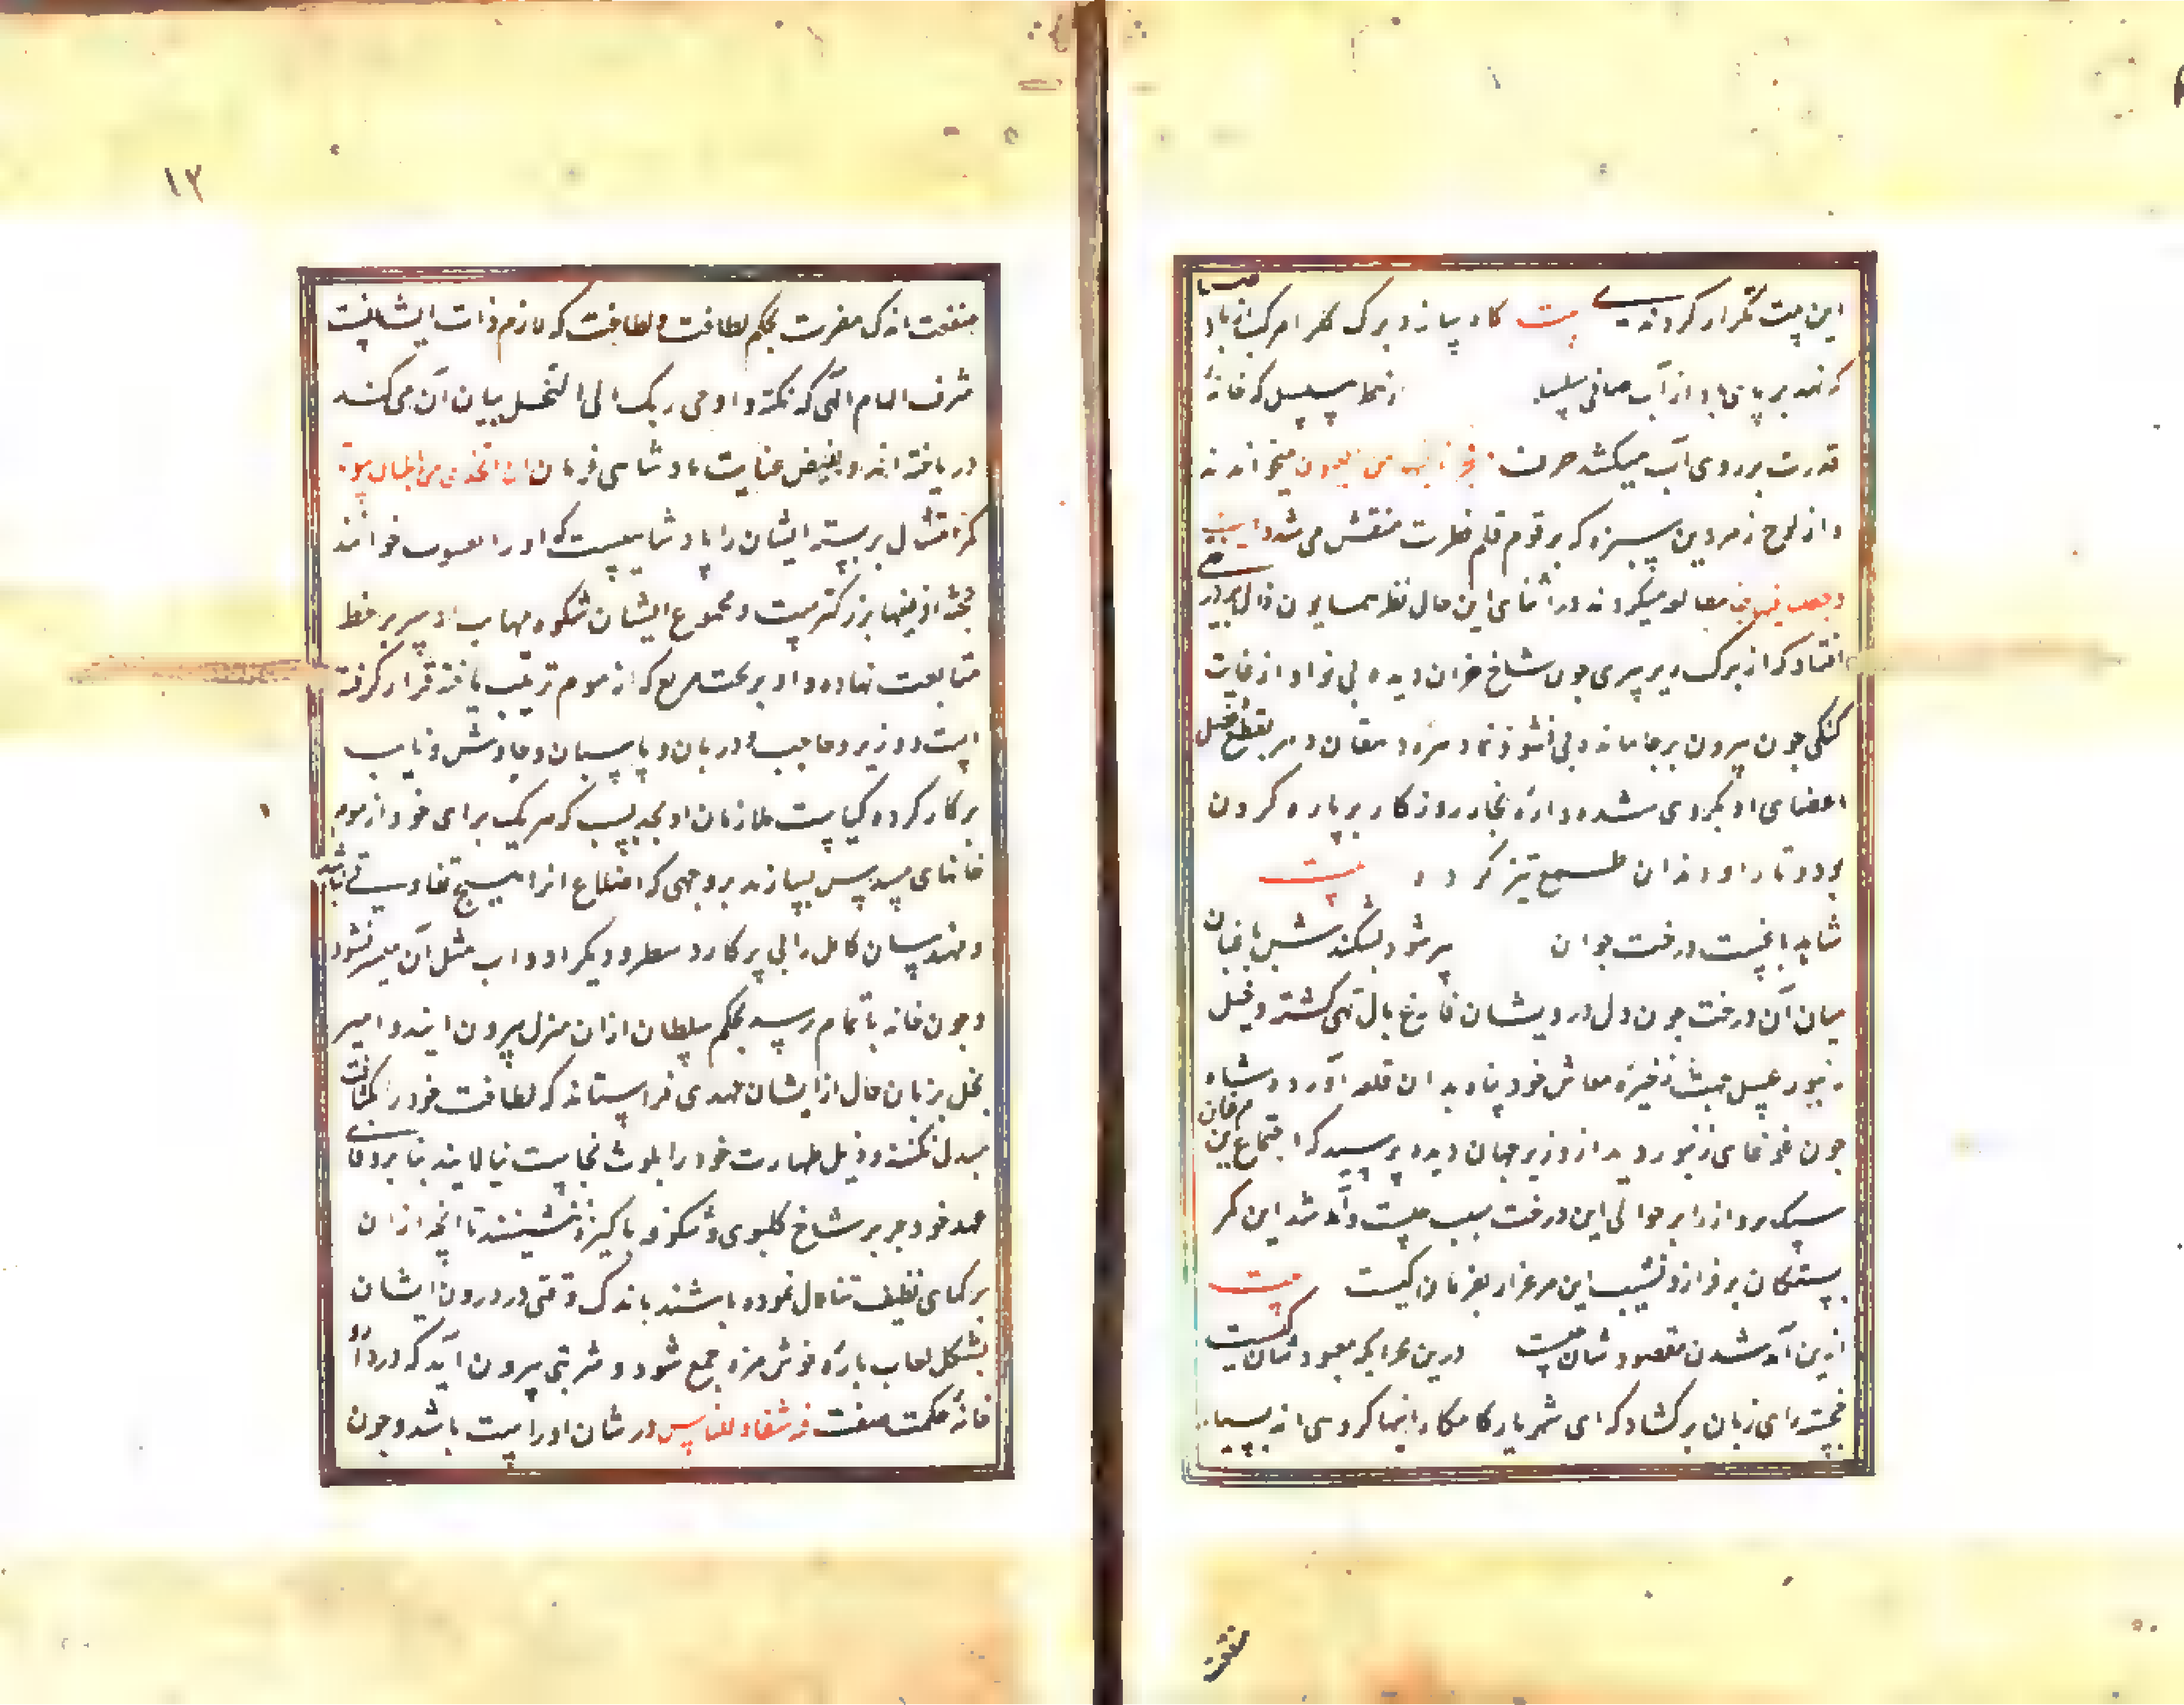 این بیت تکرار کردندی بیت گاه پیاز و برگ گلرا مرکب از باد
که نهد بر پای او از آب صافی سلسله
قدرت بر روی آب میکشد حرف میخواندند
و از لوح زمردین سبزه که برقوم قلم فطرت منقش می شد
مطالعه میکردند در اثنای این حال نظر همایون فال بر در
افتاد که از برگ ریز پیری چون شاخ خزان دیده بی نوا و از غایت
چون پیرون برجا مانده بی نشو و نما و مره دهقان دهر بقطع فصل
اعضای او بکردی شده و اره نجار روزگار بر پاره کردن
بود و تار او دندان طمع تیز کرده بیت
شاید باغیست درخت جوان پیر شود بشکندش باغبان
میان آن درخت چون دل درویشان فارغ بال تهی گشته و خیل
زنبور عسل جهت ذخیره معاش خود پناه بدان قلعه آورده شاه
چون غوغای زنبور دید از وزیر جهان دیده پرسید که اجتماع این مرغان
سبک پرواز را بر حوالی این درخت سبب چیست و آمد شد این کمر
بستگان بر فراز و نشیب این مرغزار بفرمان کیست بیت
ازین آمد شدن مقصودشان چیست درین محرابگه معبودشان کیست
خجسته رای زبان برگشاد که ای شهریار کامگار اینها گروهی اند بسیار
منفعت
۱۲
منفعت اندک مضرت بحکم لطافت و نظافت که لازم ذات ایشانست
شرف الهام الهی که نکته و اوحی ربک الی النحل بیان آن می کند
دریافته اند و بفیض عنایت پادشاهی فرمان ان اتخذی من الجبال بیوتا
کمر امتثال بر بسته ایشان را پادشاهیست که او را یعسوب خوانند
بجثه ازینها بزرگتر هست و مجموع ایشان شکوه مهابت او سر بر خط
متابعت نهاده و او بر تخت مربع که از موم ترتیب یافته قرار گرفته
است و وزیر و حاجب و دربان و پاسبان و چاوش و نایب
برکار کرده کیاست ملازمان او بحدیست که هر یک برای خود از موم
خانهای مسدس بسازند بر وجهی که اضلاع انرا هیچ تفاوتی نباشد
و مهندسان کامل را بی پرکار و مسطر و دیگر ادوات مثل آن میسر نشود
و چون خانه باتمام رسد بحکم سلطان ازان منزل بیرون ایند و امیر
نحل بزبان حال از ایشان عهدی فراستاند که لطافت خود را بکثافت
مبدل نکنند و ذیل طهارت خود را بلوث نجاست نیالایند بنا بر وفای
عهد خود جز بر شاخ گلبوی و شکوفه پاکیزه ننشینند تا انچه ازان
برگهای نظیف تناول نموده باشند باندک وقتی در درون ایشان
بشکل لعاب باره خوش مزه جمع شود و شربتی بیرون آید که در دارو
خانه حکمت صفت فیه شفاء للناس در شان او راست باشد و چون